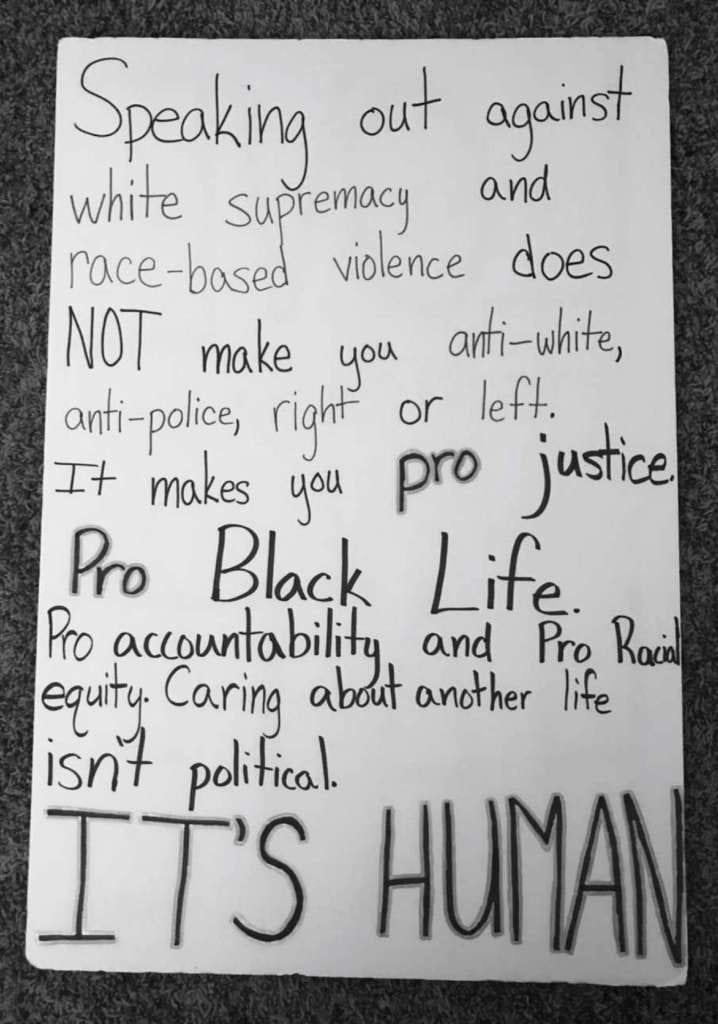 Speaking out against
white supremacy and
race-based violence does
NOT make you anti-white,
anti-police, right or left.
It makes you pro justice.
Pro Black Life.
Pro accountability and Pro Racial
equity. Caring about another life
isn't political.
IT'S HUMAN